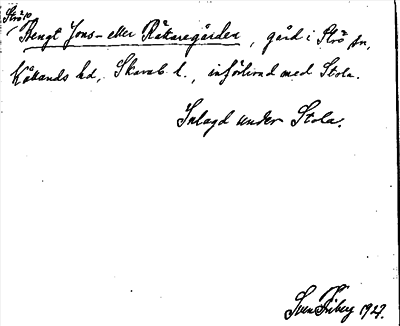 Strö 10
Bengt Jons- eller Råttaregården, gård i Strö sn,
Kållands hd, Skarab. l., införlivad med Stola.
Inlagd under Stola.
Sven Friberg 1927.